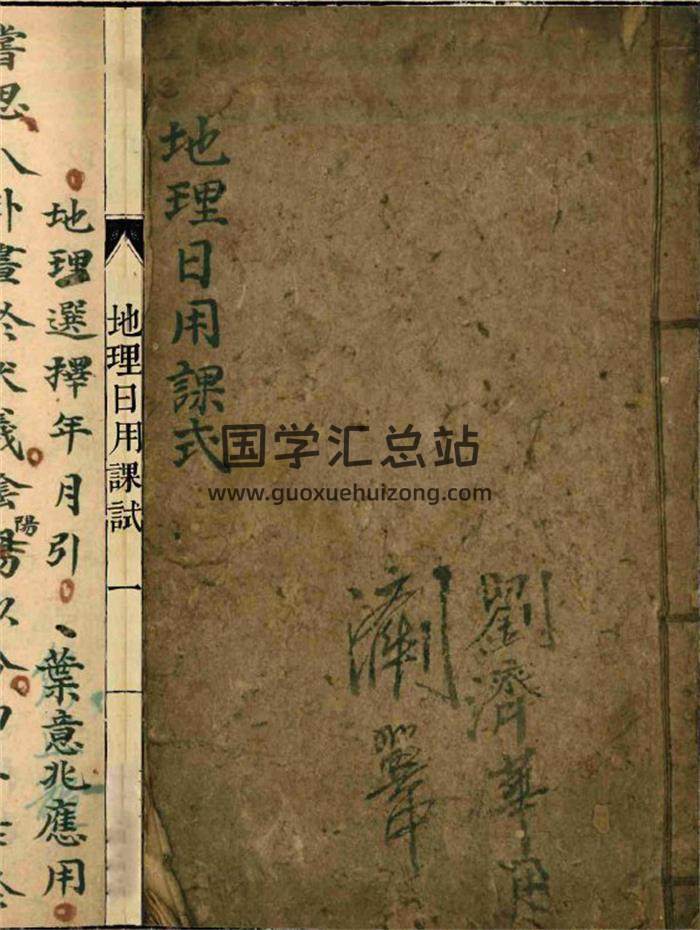 劉濟華用
地理日用課式
地理日用課試
一
地理選擇年月引
葉意兆應用
嘗思八卦畫於伏羲陰陽以分
国学汇总站
www.guoxuehuizong.com